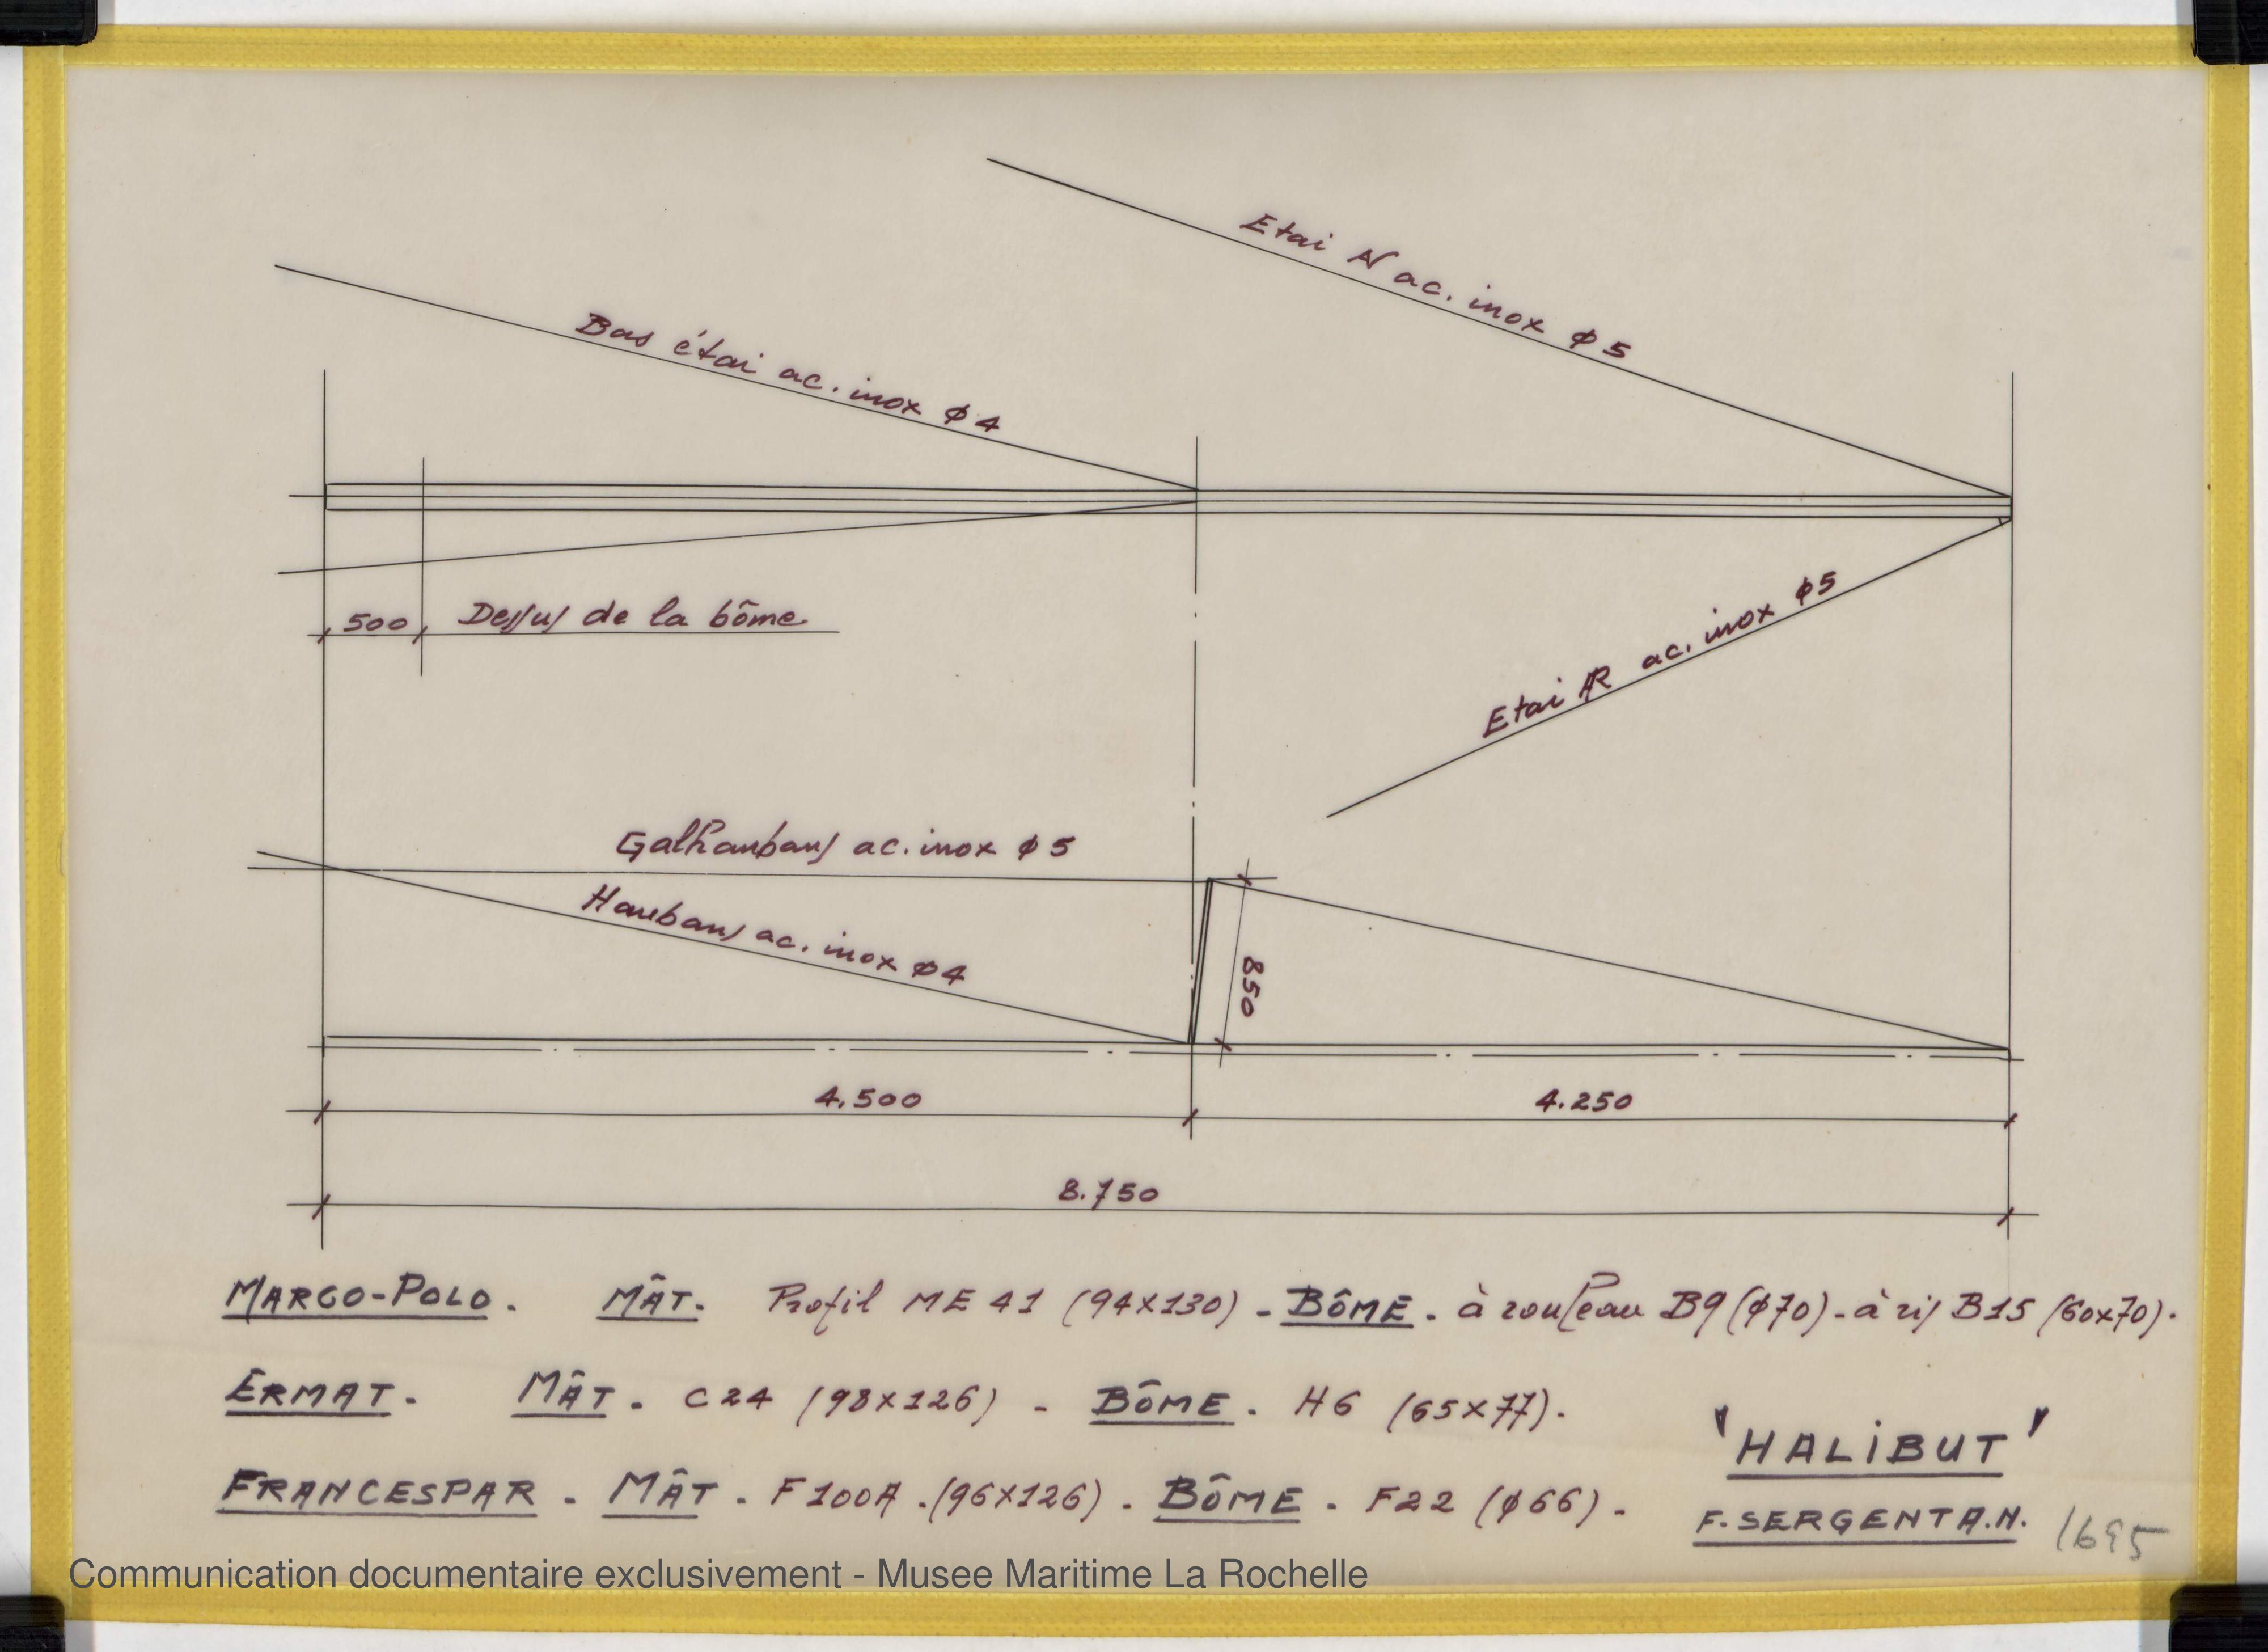 Etai AV ac. inox ϕ 5
Bas étai ac. inox ϕ 4
500 Dessus de la bôme
Etai AR ac. inox ϕ5
Galhaubans ac. inox ϕ 5
Haubans ac. inox ϕ4
850
4.500
4.250
8.750
MARCO-POLO. MÂT. Profil ME 41 (94x130) - BÔME. à rouleau B9 (ϕ70) - à ris B15 (60x70).
ERMAT. MÂT. C24 (98x126) - BÔME. H6 (65x77).
FRANCESPAR. MÂT. F100A. (96x126). BÔME. F22 (ϕ66).
"HALiBUT"
F. SERGENT A.N.
1695
Communication documentaire exclusivement - Musee Maritime La Rochelle